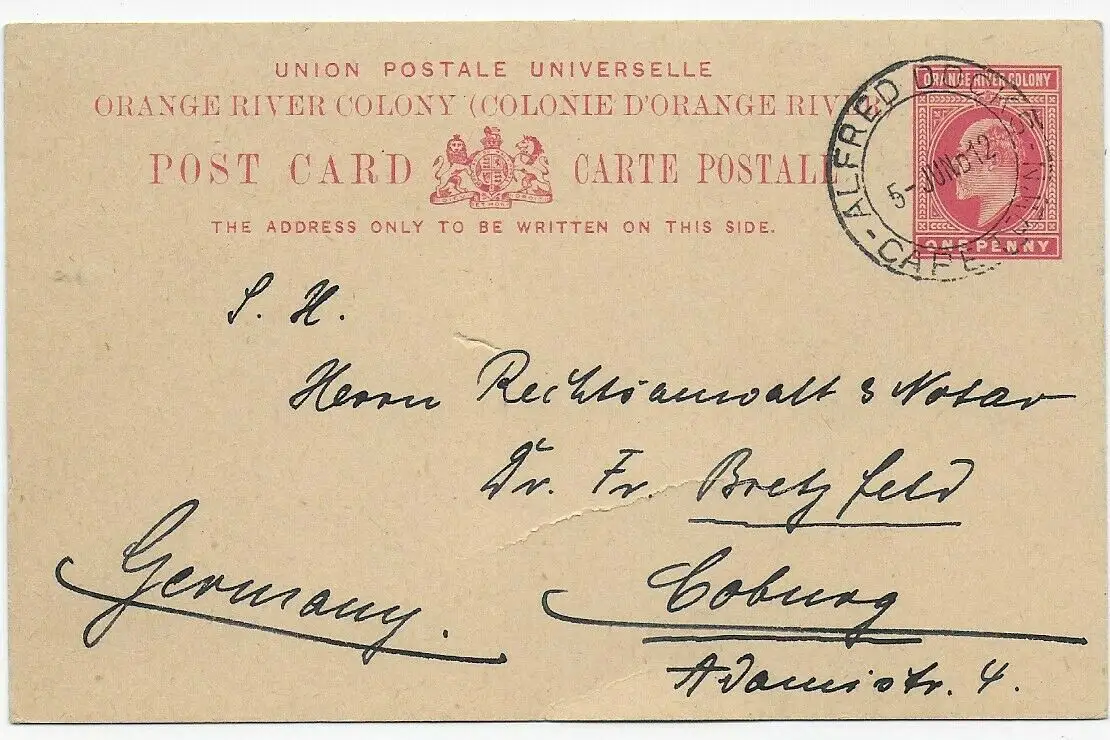 UNION POSTALE UNIVERSELLE
ORANGE RIVER COLONY (COLONIE D'ORANGE RIV
POST CARD CARTE POSTALE
DIEU ET MON DROIT
THE ADDRESS ONLY TO BE WRITTEN ON THIS SIDE.
ORANGE RIVER COLONY
ONE PENNY
ALFRED DOCKS
5-JUN 12
CAPE
S. H.
Herrn Rechtsanwalt & Notar
Dr. Fr Bretzfeld
Coburg
Adamistr. 4.
Germany.